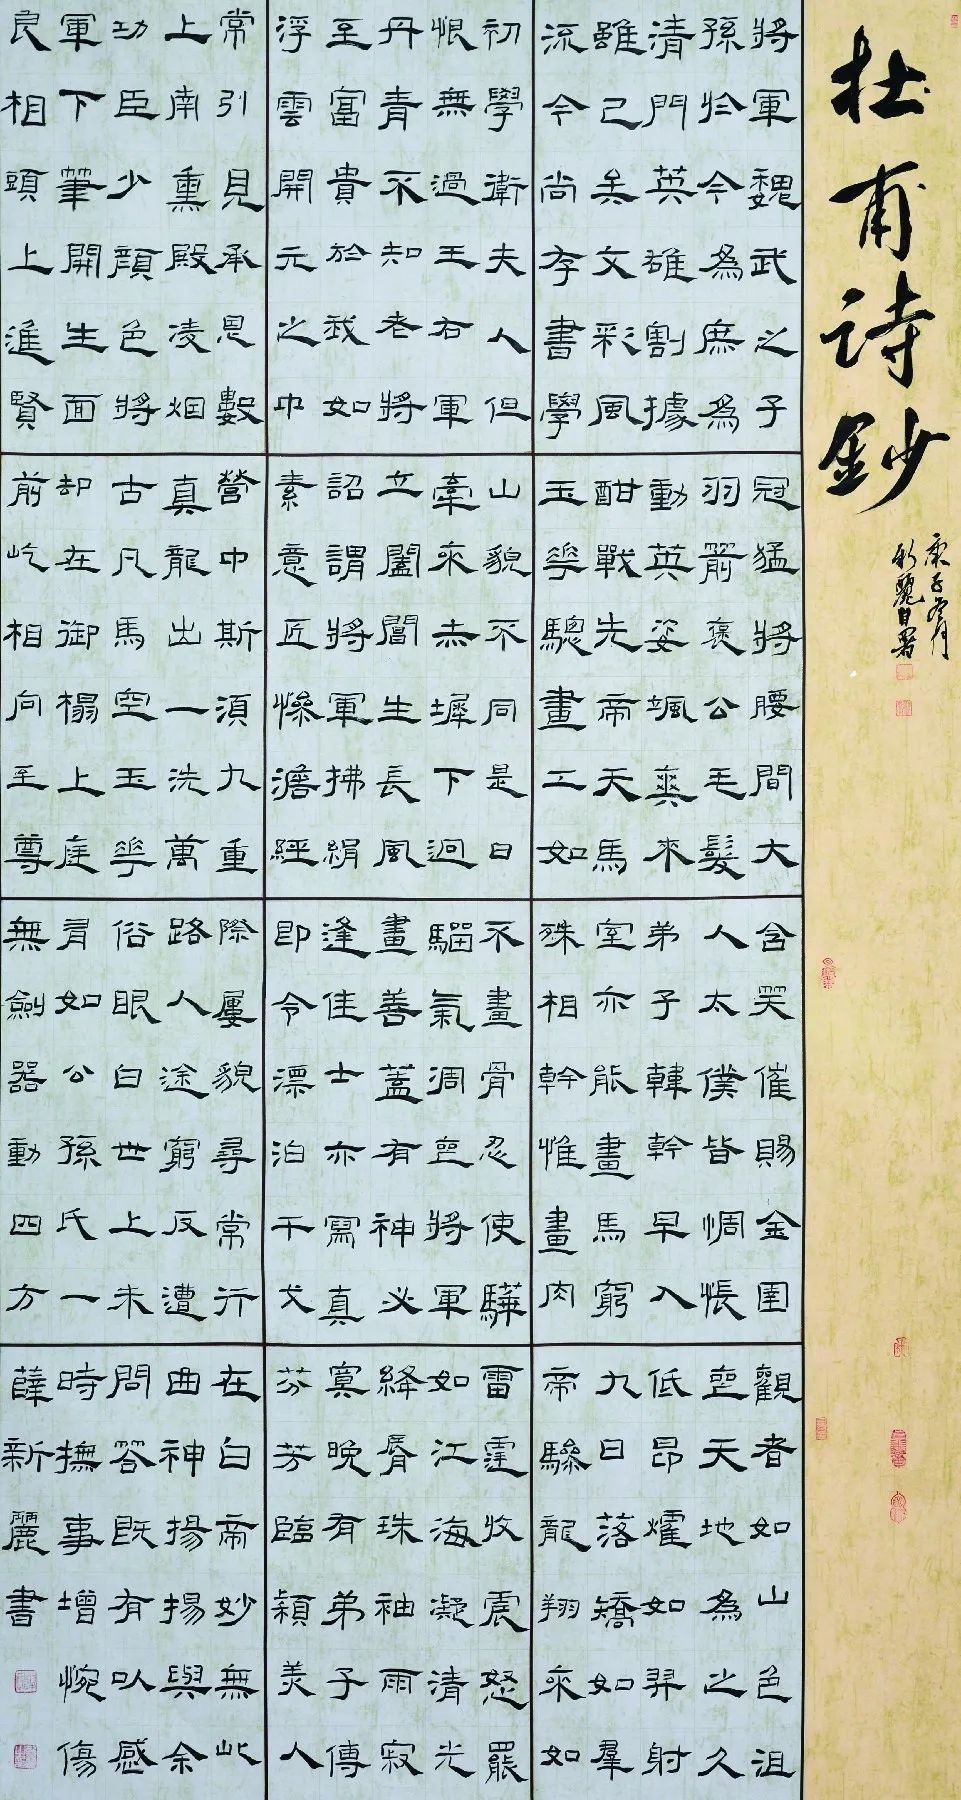 杜甫诗鈔
庚子冬月
新麗自署
將軍魏武之子
孫於今為庶為
清門英雄割據
雖已矣文彩風
流今尚存書學
初學衛夫人但
恨無過王右軍
丹青不知老將
至富貴於我如
浮雲開元之中
常引見承恩數
上南熏殿凌烟
功臣少顏色將
軍下筆開生面
良相頭上進賢
冠猛將腰間大
羽箭褒公毛髮
動英姿颯爽來
酣戰先帝天馬
玉華驄畫工如
山貌不同是日
牽來赤墀下迥
立闔閶生長風
詔謂將軍拂絹
素意匠慘澹經
營中斯須九重
真龍出一洗萬
古凡馬空玉華
却在御榻上庭
前屹相向至尊
含笑催賜金圉
人太僕皆惆悵
弟子韓幹早入
室亦能畫馬窮
殊相幹惟畫肉
不畫骨忍使驊
騮氣凋喪將軍
畫善蓋有神必
逢佳士亦寫真
即令漂泊干戈
際屢貌尋常行
路人途窮反遭
俗眼白世上未
有如公孫氏一
無劍器動四方
觀者如山色沮
喪天地為之久
低昂燿如羿射
九日落矯如羣
帝驂龍翔來如
雷霆收震怒罷
如江海凝清光
絳脣珠袖兩寂
寞晚有弟子傳
芬芳臨潁美人
在白帝妙無此
曲神揚揚與余
問答既有以感
時撫事增惋傷
薛新麗書